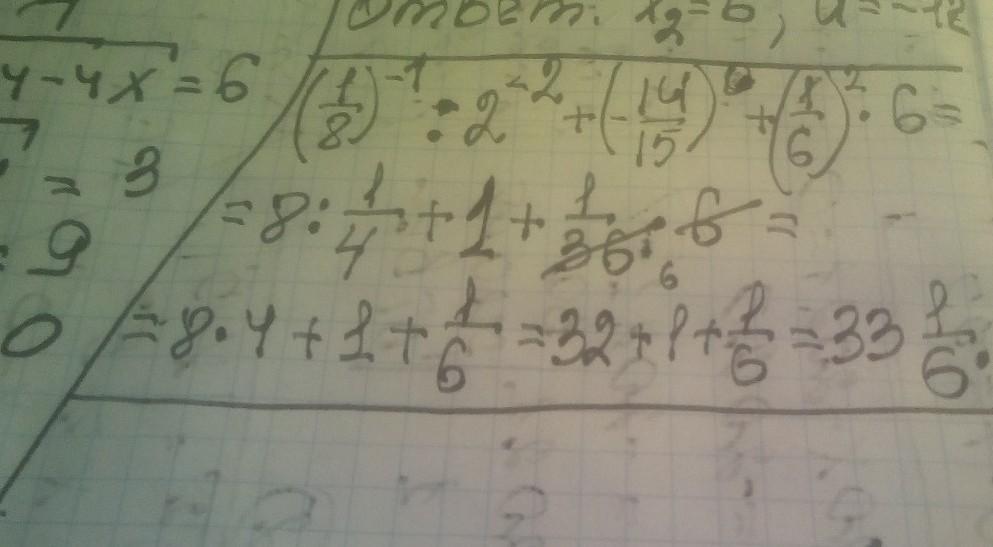 Ответ: x₂ = 6, a = -12
4 - 4x = 6
(1/8)⁻¹ : 2⁻² + (-14/15)⁰ + (1/6)² · 6 =
= 3
= 8 : 1/4 + 1 + 1/36 · 6 =
: 9
6
0
= 8 · 4 + 1 + 1/6 = 32 + 1 + 1/6 = 33 1/6.